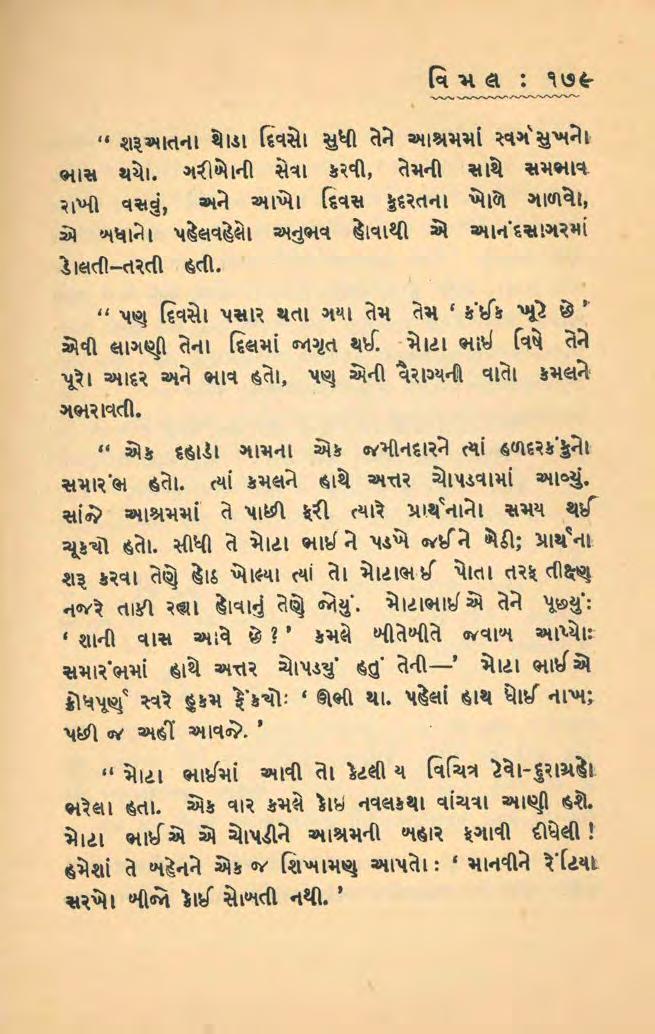 વિ મ લ : ૧૭૯
“ શરૂઆતના થોડા દિવસો સુધી તેને આશ્રમમાં સ્વર્ગસુખનો
ભાસ થયો. ગરીબોની સેવા કરવી, તેમની સાથે સમભાવ
રાખી વસવું, અને આખો દિવસ કુદરતના ખોળે ગાળવો,
એ બધાનો પહેલવહેલો અનુભવ હોવાથી એ આનંદસાગરમાં
ડોલતી–તરતી હતી.
“ પણ દિવસો પસાર થતા ગયા તેમ તેમ ‘ કંઈક ખૂટે છે ’
એવી લાગણી તેના દિલમાં જાગૃત થઈ. મોટા ભાઈ વિષે તેને
પૂરો આદર અને ભાવ હતો, પણ એની વૈરાગ્યની વાતો કમલને
ગભરાવતી.
“ એક દહાડો ગામના એક જમીનદારને ત્યાં હળદરકંકુનો
સમારંભ હતો. ત્યાં કમલને હાથે અત્તર ચોપડવામાં આવ્યું.
સાંજે આશ્રમમાં તે પાછી ફરી ત્યારે પ્રાર્થનાનો સમય થઈ
ચૂક્યો હતો. સીધી તે મોટા ભાઈ ને પડખે જઈને બેઠી; પ્રાર્થના
શરૂ કરવા તેણે હોઠ ખોલ્યા ત્યાં તો મોટાભઈ પોતા તરફ તીક્ષ્ણ
નજરે તાકી રહ્યા હોવાનું તેણે જોયું. મોટાભાઈ એ તેને પૂછ્યું:
‘ શાની વાસ આવે છે ? ’ કમલે બીતેબીતે જવાબ આપ્યોઃ
સમારંભમાં હાથે અત્તર ચોપડયું હતું તેની—’ મોટા ભાઈએ
ક્રોધપૂર્ણ સ્વરે હુકમ ફેંક્યોઃ ‘ ઊભી થા. પહેલાં હાથ ધોઈ નાખ;
પછી જ અહીં આવજે. ’
“ મોટા ભાઈમાં આવી તો કેટલી ય વિચિત્ર ટેવો-દુરાગ્રહો
ભરેલા હતા. એક વાર કમલે કોઈ નવલકથા વાંચવા આણી હશે.
મોટા ભાઈએ એ ચોપડીને આશ્રમની બહાર ફગાવી દીધેલી !
હમેશાં તે બહેનને એક જ શિખામણ આપતો : ‘ માનવીને રેંટિયા
સરખો બીજો કોઈ સોબતી નથી. ’